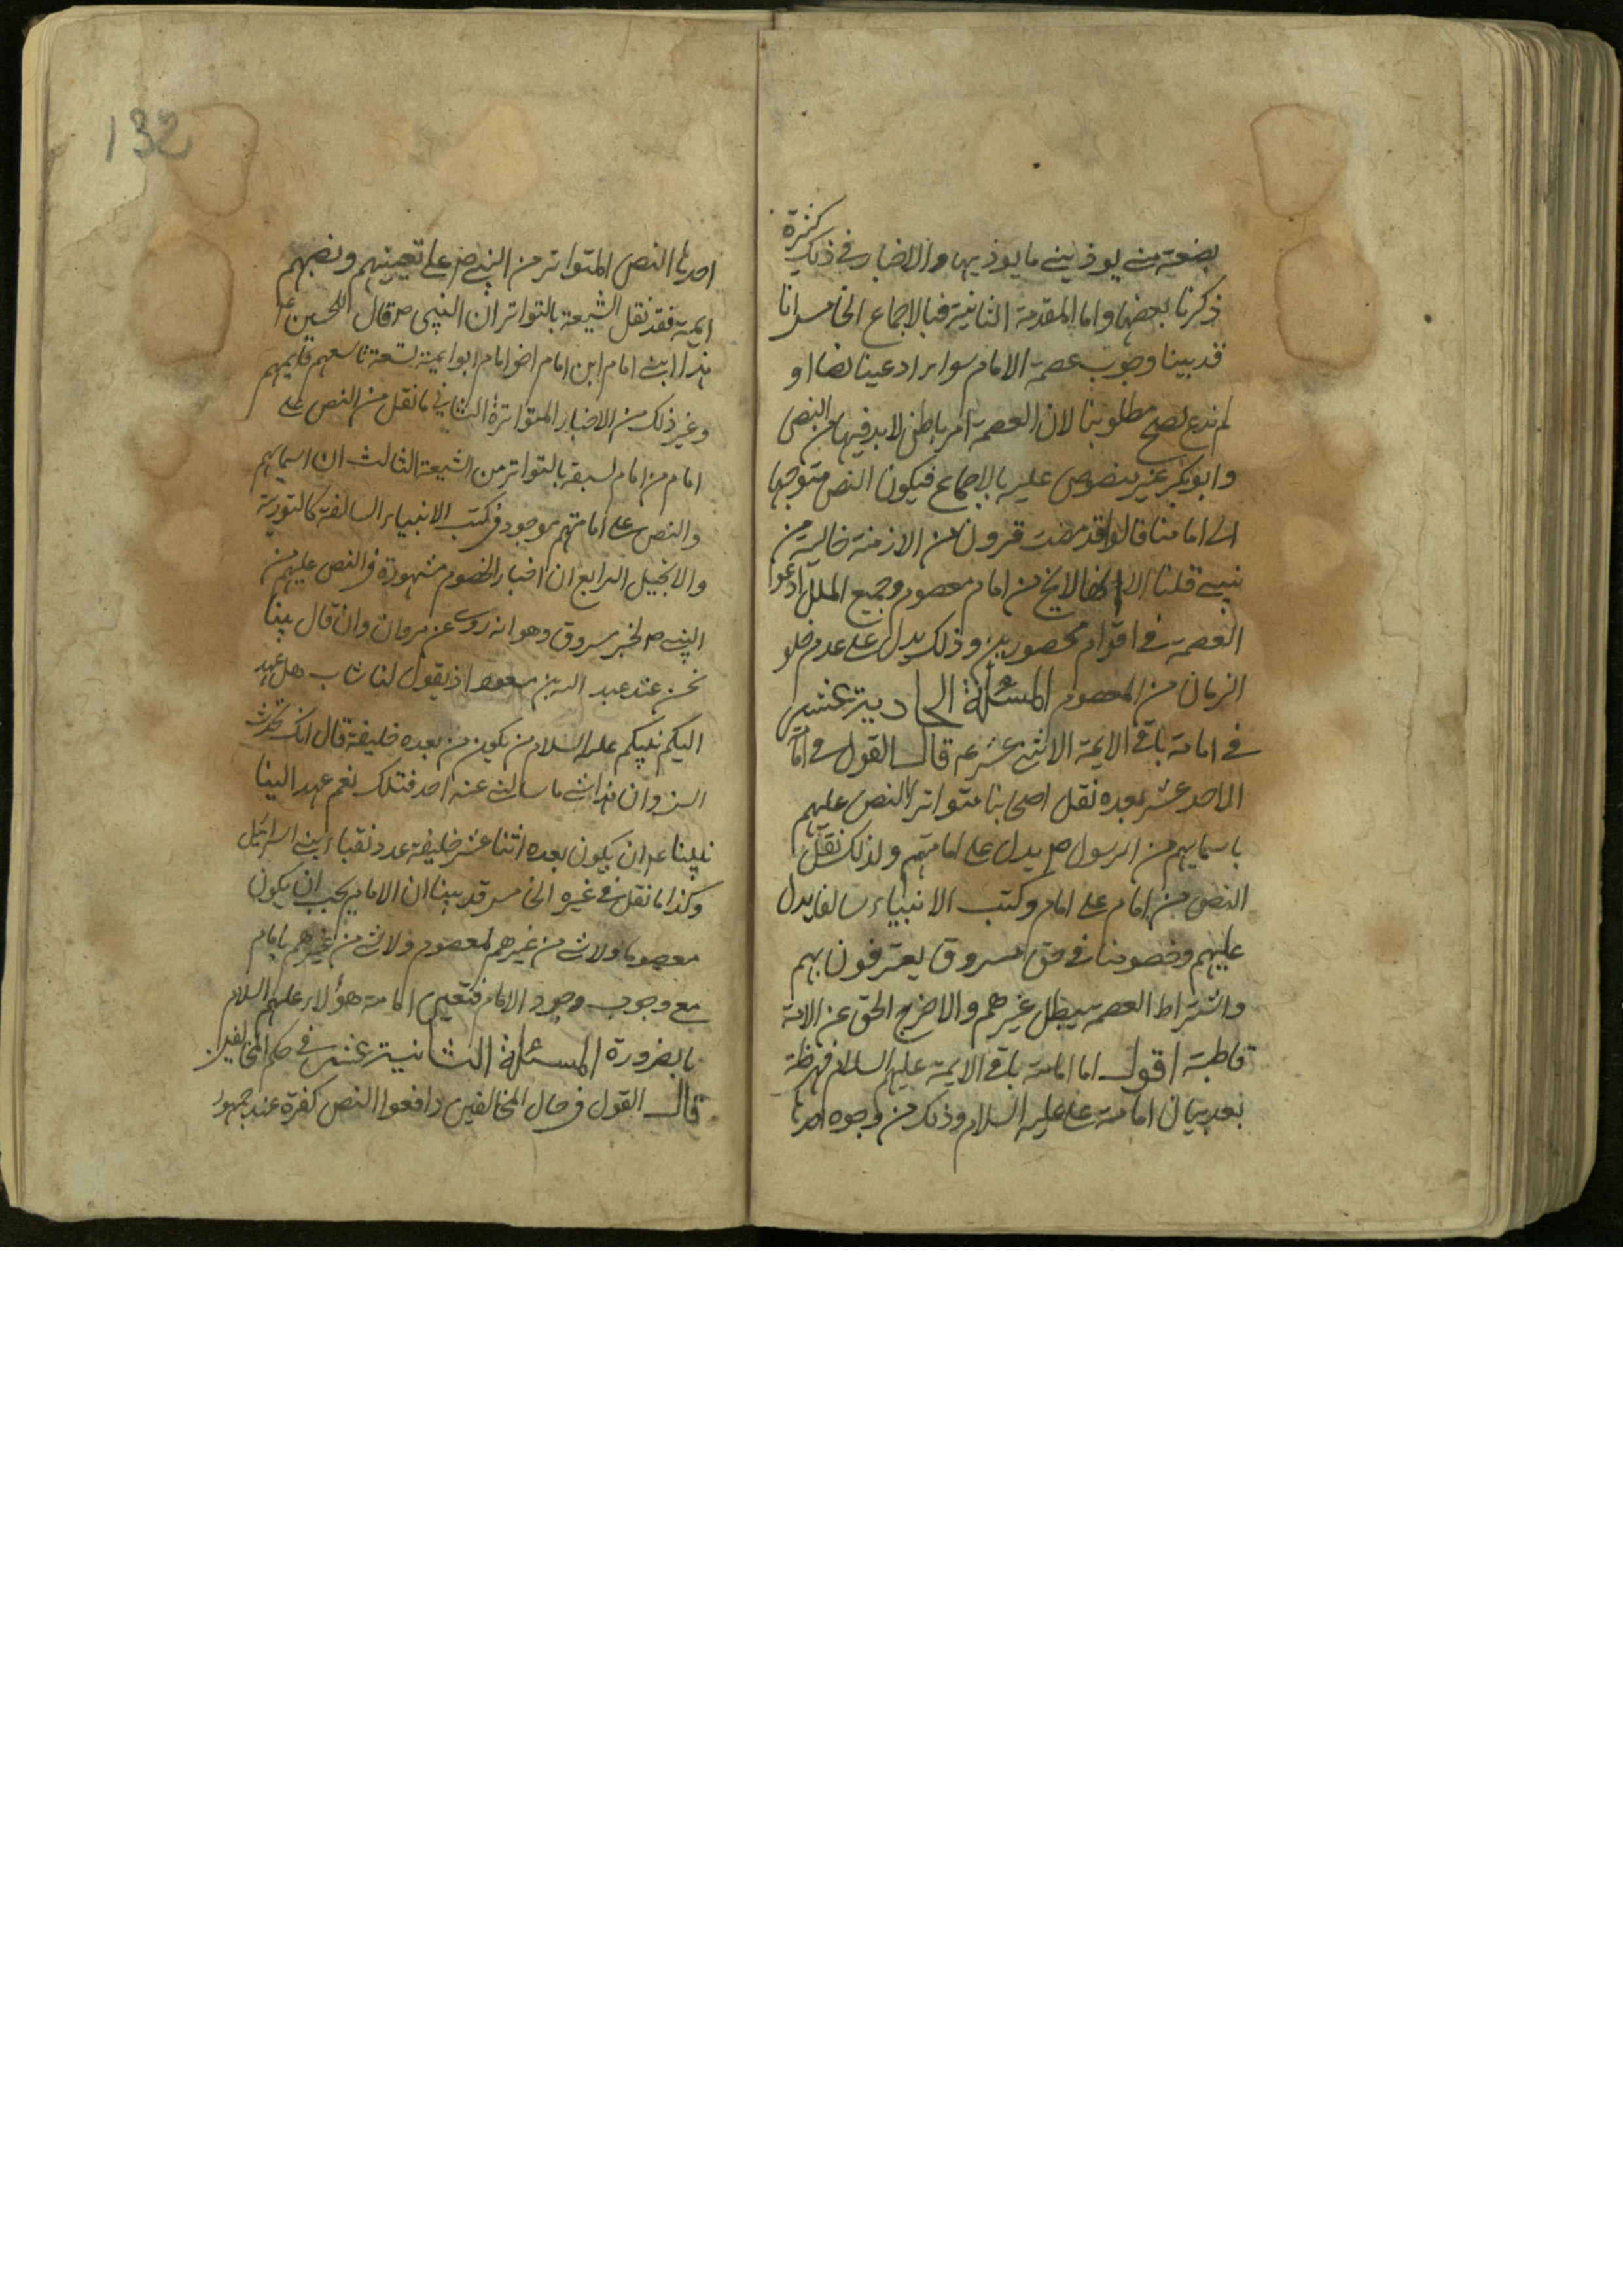 بضعة مني يوذيني ما يوذيها والاخبار في ذلك كثيرة
ذكرنا بعضها واما المقدمة الثانية فبالاجماع الخامس انا
قد بينا وجوب عصمة الامام سواء ادعينا نصا او
لم ندع يصح مطلوبنا لان العصمة امر باطني لا بد فيها من النص
وابوبكر غير منصوص عليه بالاجماع فيكون النص متوجها
الى امامنا قالوا قد مضت قرون من الازمنة خالية من
نبي قلنا الا انها لا يخ من امام معصوم وجميع الملل ادعوا
العصمة في اقوام محصورين وذلك يدل على عدم خلو
الزمان من المعصوم المسئلة الحادية عشر
في امامة باقي الايمة الاثني عشر ع قال القول في امامة
الاحد عشر بعده نقل اصحابنا متواترا النص عليهم
باسمايهم من الرسول ص يدل على امامتهم ولذلك نقل
النص من امام على امام وكتب الانبياء سالفا يدل
عليهم وخصوصا في حق مسروق يعترفون بهم
واشتراط العصمة يبطل غيرهم والا خرج الحق عن الامة
قاطبة اقول اما امامة باقي الايمة عليهم السلام فهو ظة
بعد بيان امامة علي عليه السلام وذلك من وجوه احدها
132
احدها النص المتواتر من النبي ص على تعيينهم ونصبهم
ايمة فقد نقل الشيعة بالتواتر ان النبي ص قال للحسين ع
هذا ابني امام ابن امام اخو امام ابو ايمة تسعة تاسعهم قايمهم
وغير ذلك من الاخبار المتواترة الثاني ما نقل من النص على
امام من امام لسبقه بالتواتر من الشيعة الثالث ان اسمايهم
والنص على امامتهم موجود في كتب الانبياء السالفة كالتورية
والانجيل الرابع ان اخبار الخصوم مشهورة في النص عليهم من
النبي ص لخبر مسروق وهو انه روى عن مروان وان قال بينا
نحن عند عبد الله بن مسعود اذ يقول لنا شاب هل عهد
اليكم نبيكم عليه السلام من يكون من بعده خليفة قال انك لحدث
السن وان هذا شي ما سالني عنه احد قبلك نعم عهد الينا
نبينا ع ان يكون بعده اثنا عشر خليفة عدد نقباء بني اسرائيل
وكذا ما نقل في غيره الخامس قد بينا ان الامام يجب ان يكون
معصوما ولا شي من غيرهم لمعصوم ولا شي من غيرهم بامام
مع وجوب وجود الامام فتعين امامة هؤلاء عليهم السلام
بالضرورة المسئلة الثانية عشر في حكم المخالفين
قال القول في حال المخالفين دافعوا النص كفرة عند جمهور